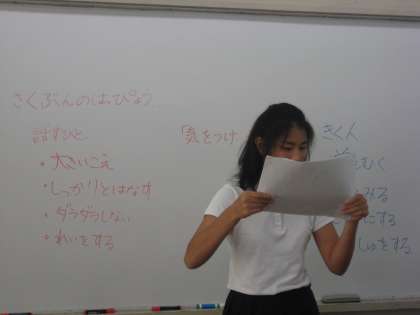 さくぶんのはっぴょう
話すひと
・大きいこえ
・しっかりとはなす
・ダラダラしない
・れいをする
気をつけ
きく人
むく
みる
にする
しゅをする